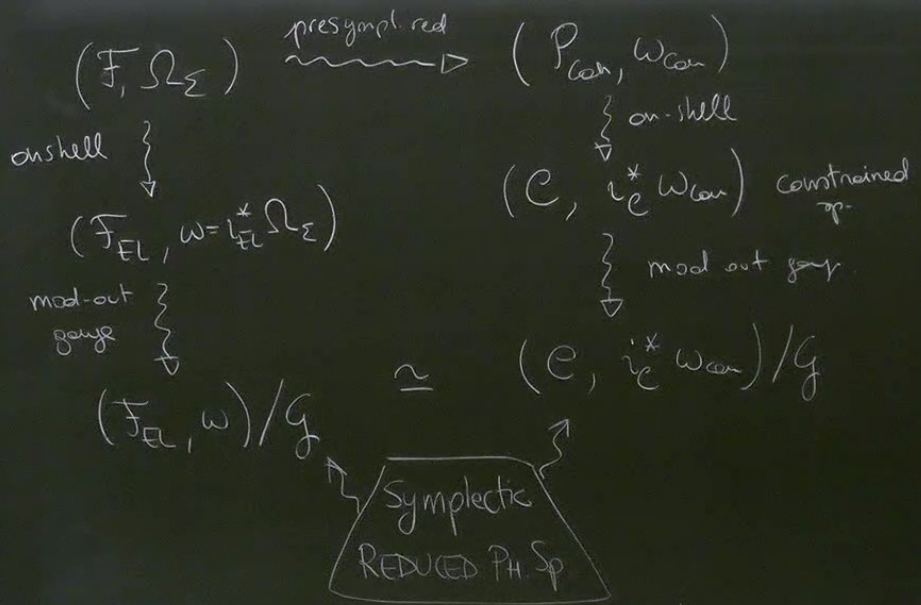 presympl. red
(F, Ω_Σ) (P_can, ω_can)
onshell
on-shell
(F_EL, ω = i*_EL Ω_Σ)
(C, i*_C ω_can) constrained
sp.
mod-out
gauge
mod out gaug.
(F_EL, ω)/G ≃ (C, i*_C ω_can)/G
Symplectic
REDUCED PH. Sp